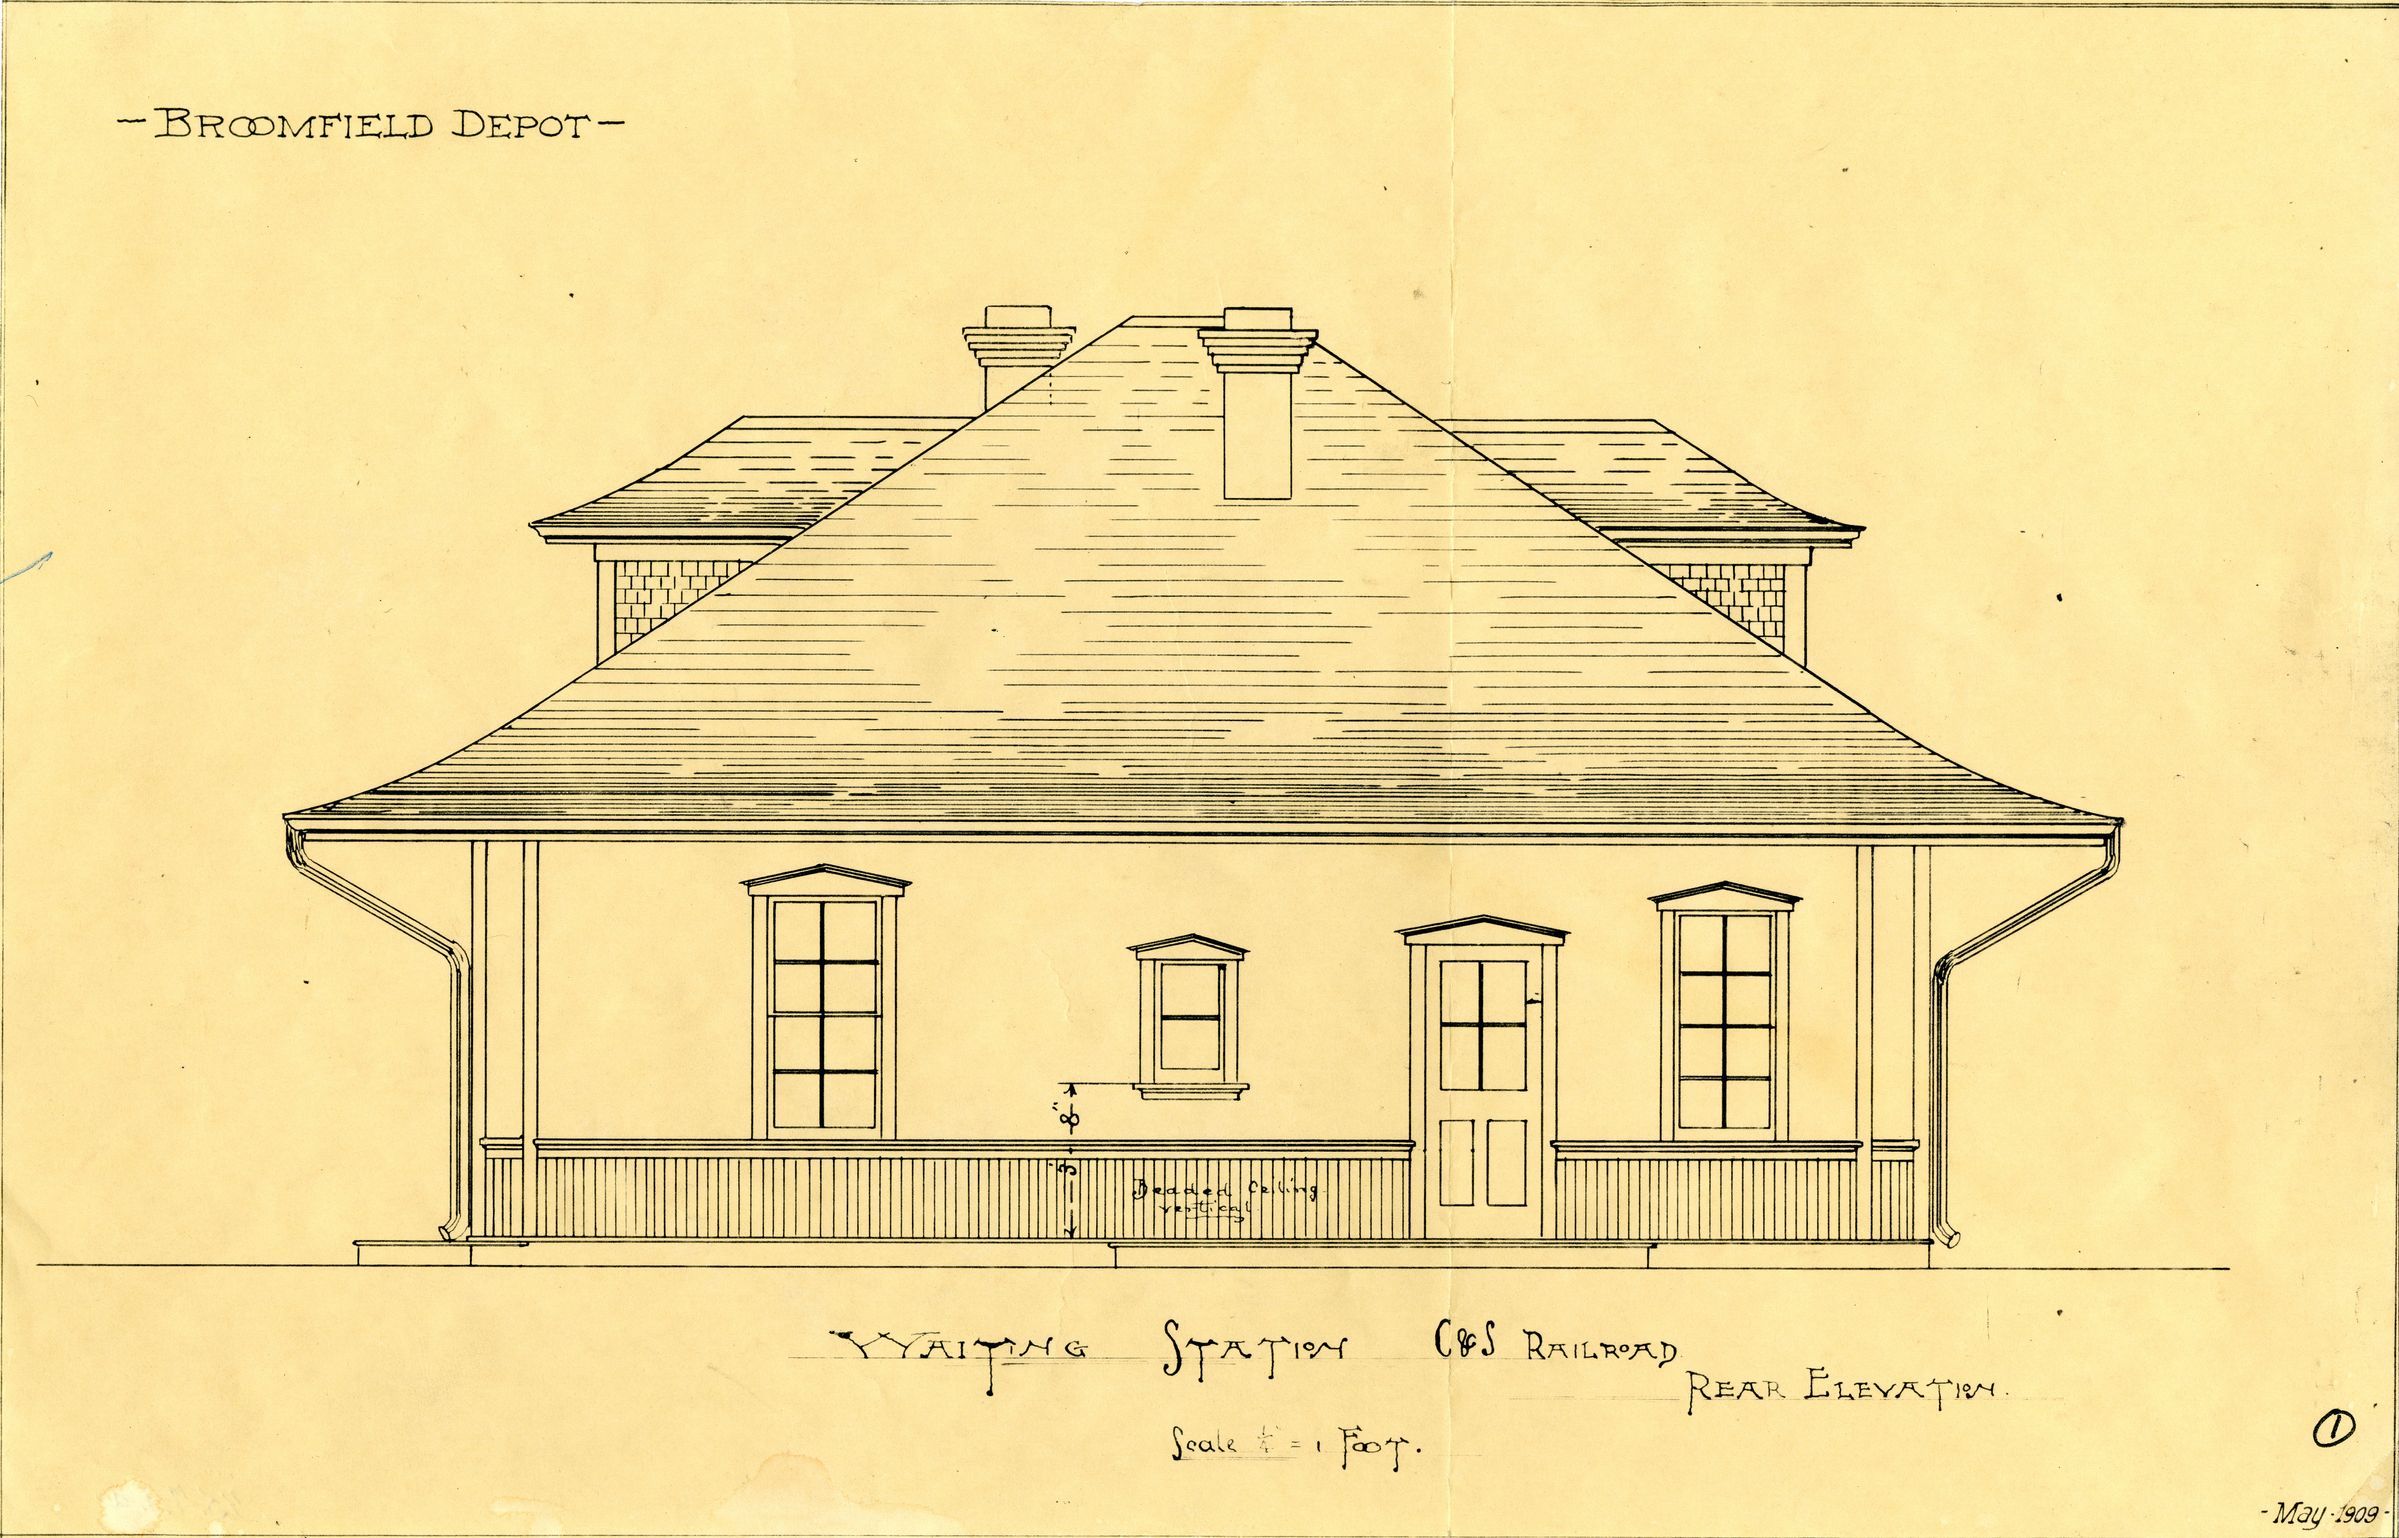 - BROOMFIELD DEPOT -
3'-8"
Beaded Ceiling
vertical
WAITING STATION C&S RAILROAD
REAR ELEVATION.
Scale ¼" = 1 FOOT.
1
- May - 1909 -